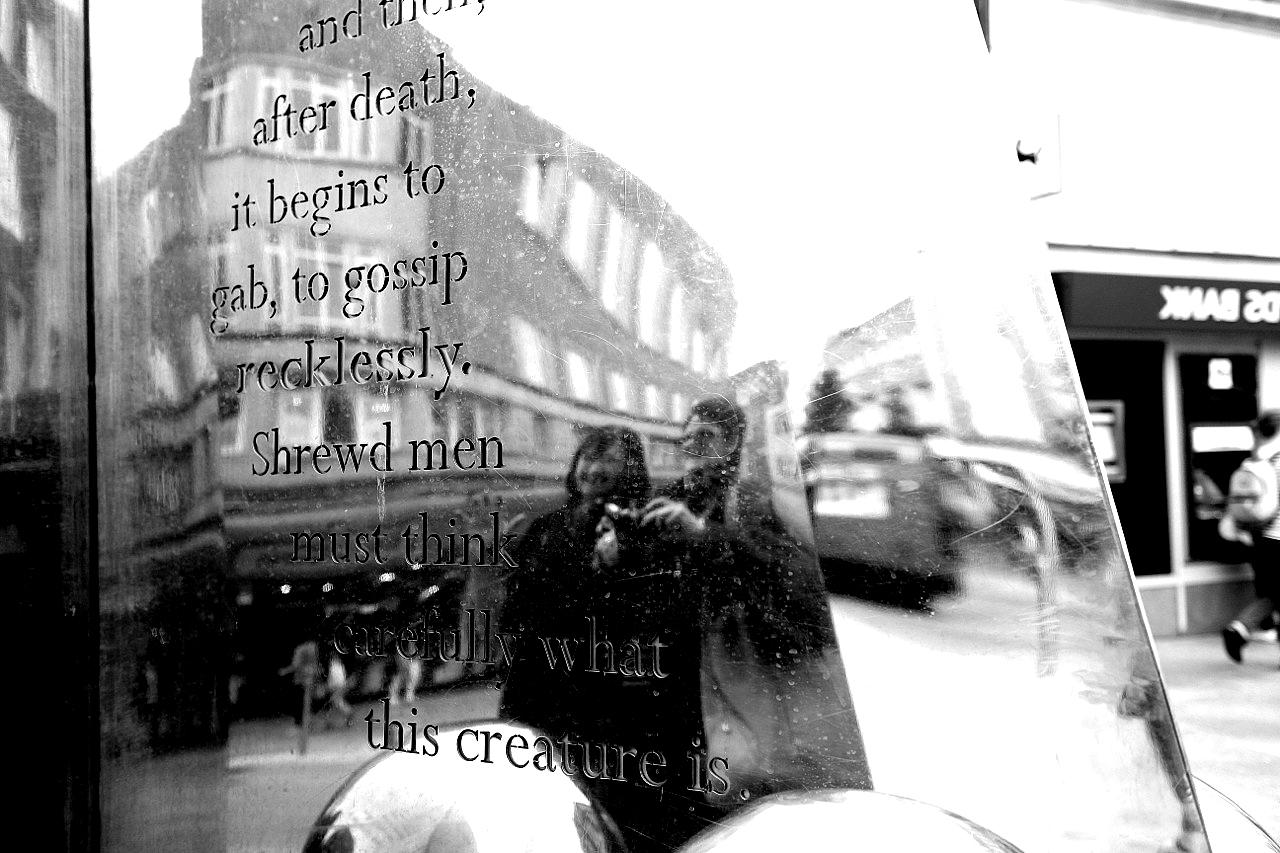 and then,
after death,
it begins to
gab, to gossip
recklessly.
Shrewd men
must think
carefully what
this creature is.
DS BANK